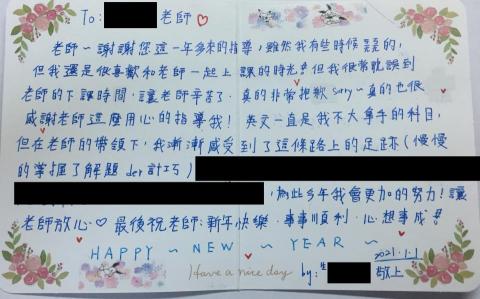 To: 老師
老師~謝謝您這一年多來的指導,雖然我有些時候呆呆的,
但我還是很喜歡和老師一起上課的時光!但我很常耽誤到
老師的下課時間,讓老師辛苦了,真的非常抱歉sorry~真的也很
感謝老師這麼用心的指導我!英文一直是我不太拿手的科目,
但在老師的帶領下,我漸漸感受到了這條路上的足跡(慢慢
的掌握了解題der計巧)
,為此今年我會更加的努力!讓
老師放心♡最後祝老師:新年快樂、事事順利、心想事成!!
HAPPY ~ NEW ~ YEAR ~
2021.1.1
Have a nice day
by: 生 敬上